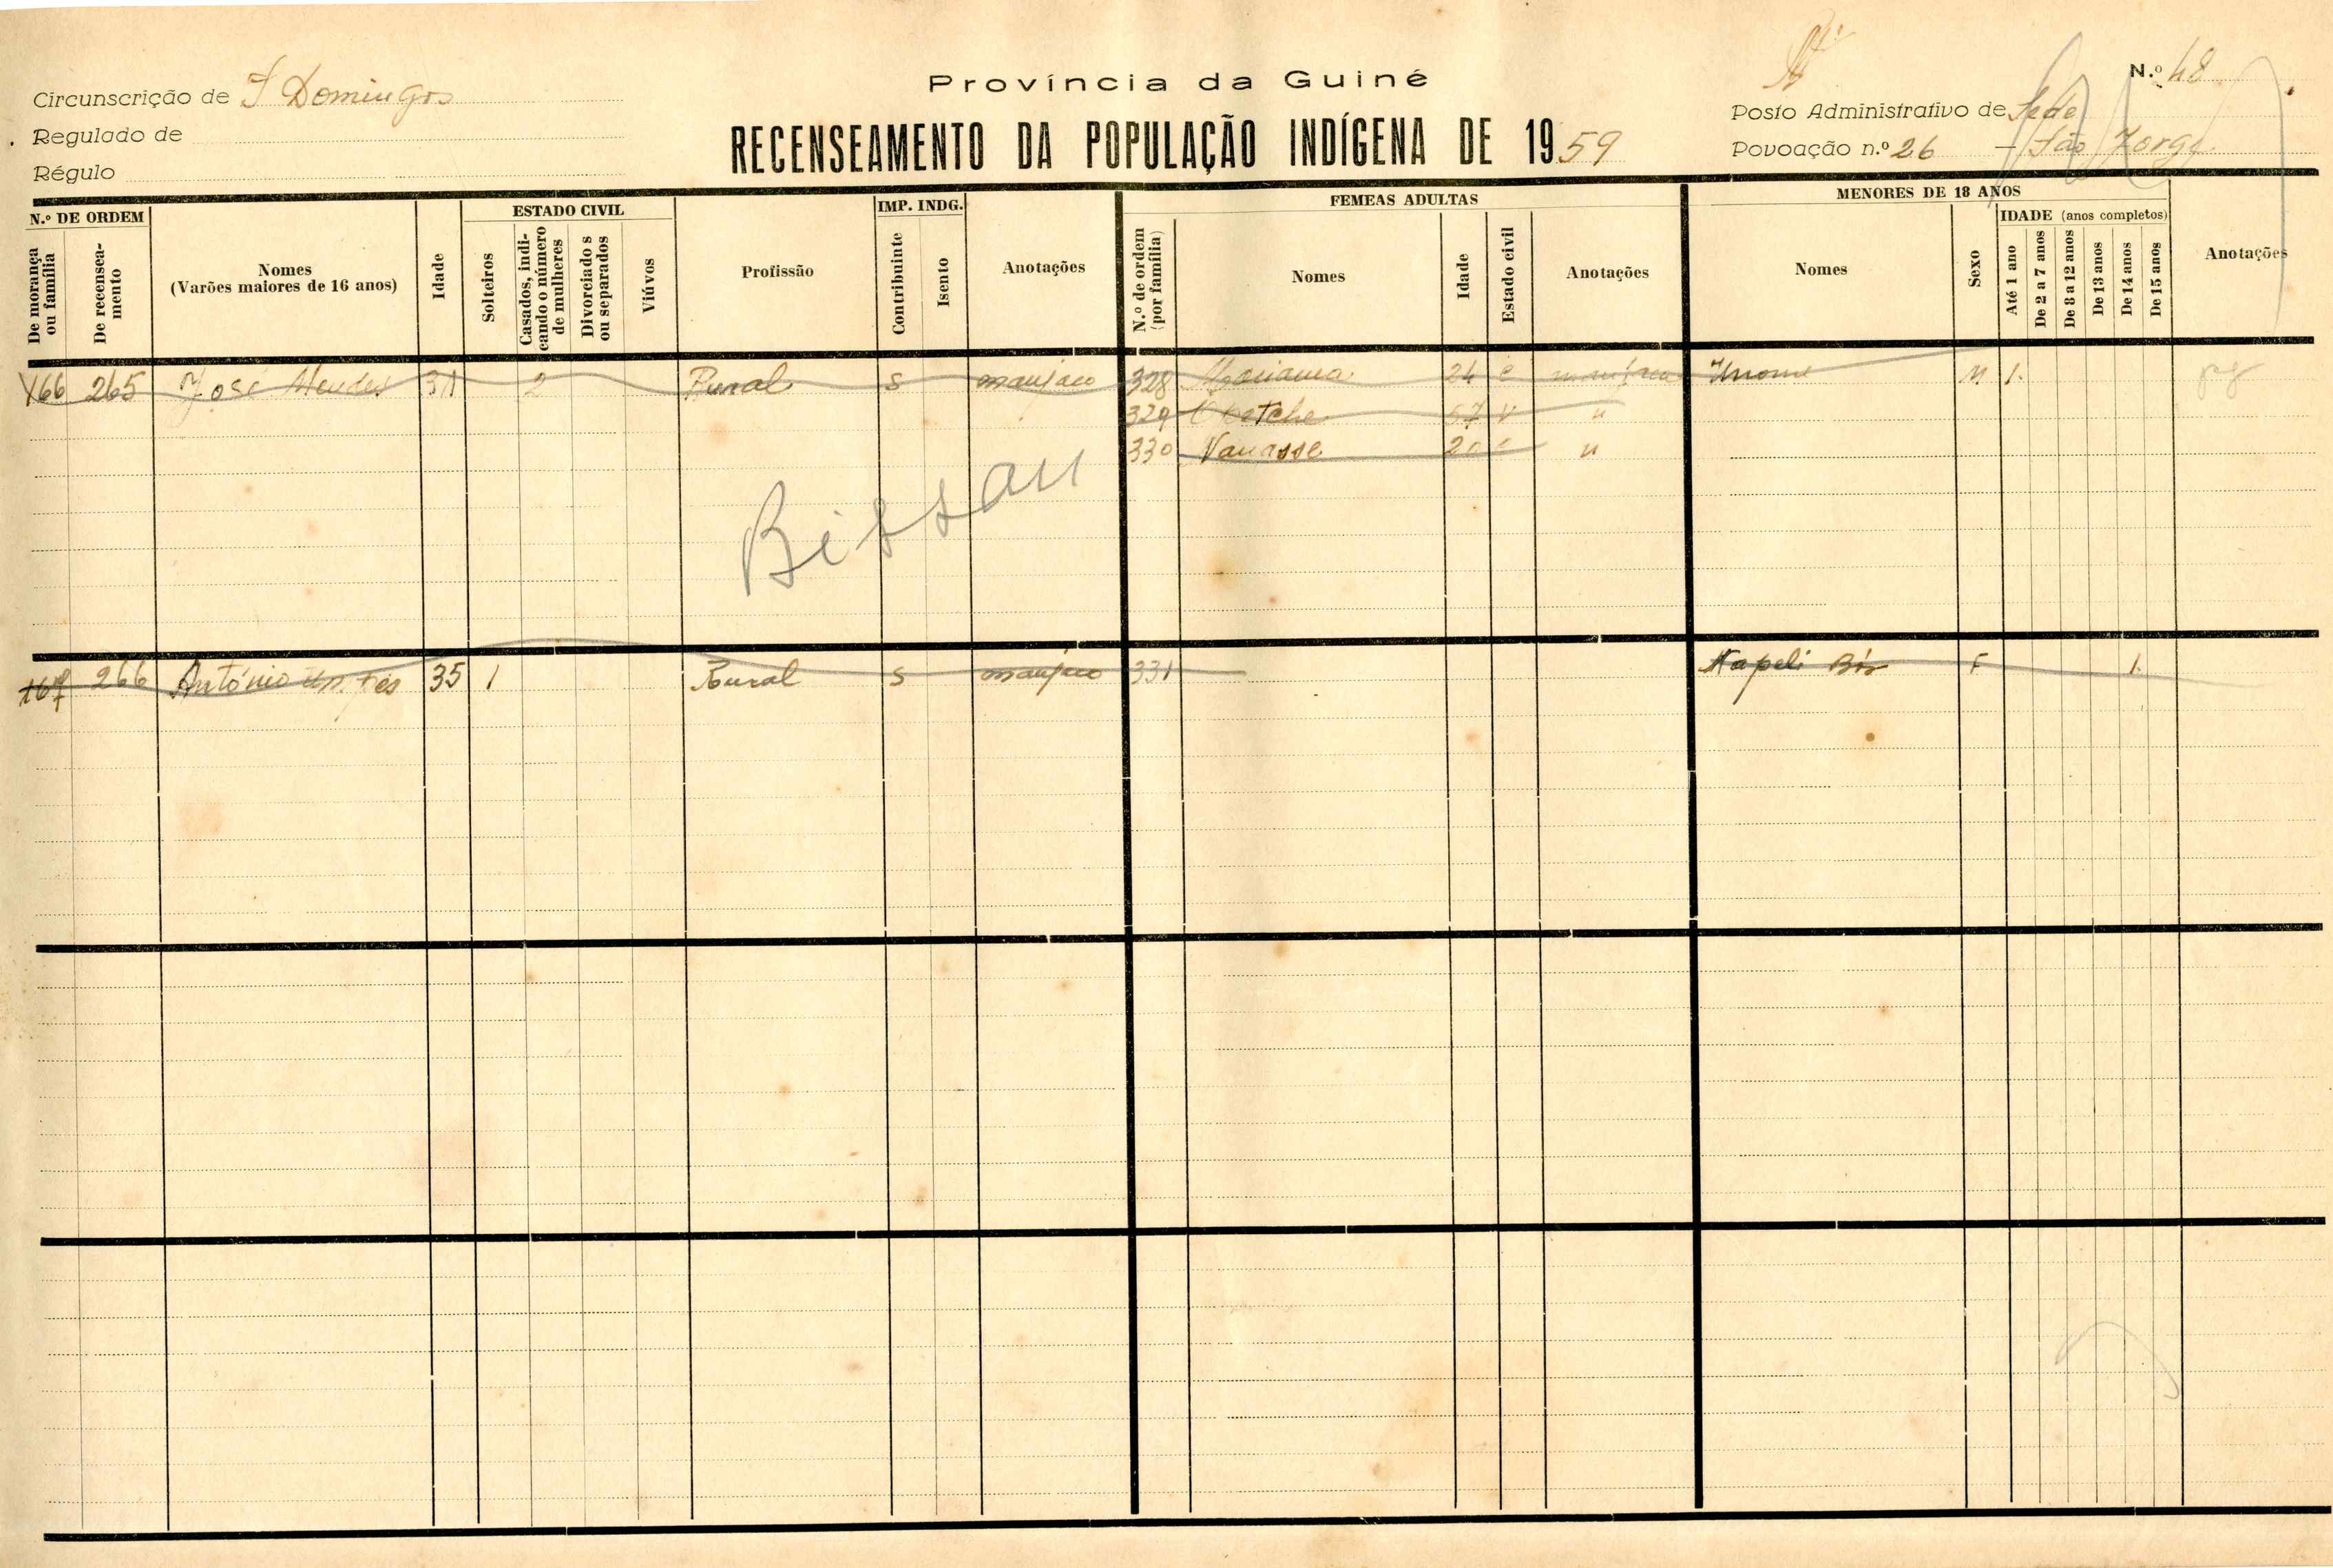 Província da Guiné
RECENSEAMENTO DA POPULAÇÃO INDÍGENA DE 1959
Circunscrição de S Domingos
Regulado de
Régulo
N.º 48
Posto Administrativo de Sede
Povoação n.º 26 – São Jorge
N.º DE ORDEM
De morança ou família
De recenseamento
Nomes
(Varões maiores de 16 anos)
Idade
ESTADO CIVIL
Solteiros
Casados, indicando o número de mulheres
Divorciados ou separados
Viúvos
Profissão
IMP. INDG.
Contribuinte
Isento
Anotações
FEMEAS ADULTAS
N.º de ordem (por família)
Nomes
Idade
Estado civil
Anotações
MENORES DE 18 ANOS
Nomes
Sexo
IDADE (anos completos)
Até 1 ano
De 2 a 7 anos
De 8 a 12 anos
De 13 anos
De 14 anos
De 15 anos
Anotações
166 265 José Mendes 31 2 Rural S manjaco 328 24 C manjaca M 1
329 57 V "
330 Vanasse "
Bissau
167 266 António 35 1 Rural S manjaco 331 Napeli F 1